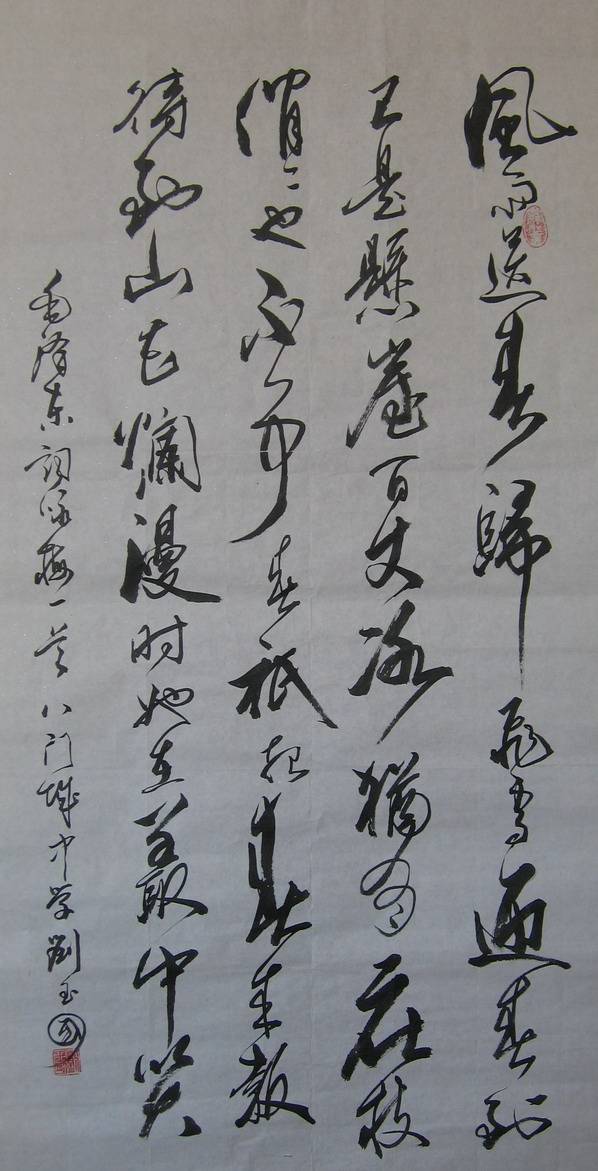 風雨送春歸飛雪迎春到
已是懸崖百丈冰猶有花枝
俏々也不爭春祇把春來報
待到山花爛漫时她在叢中笑
毛泽东詞咏梅一首八门城中学劉玉国